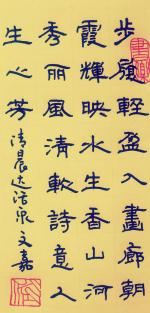 步履輕盈入畫廊朝
霞輝映水生香山河
秀麗風清軟詩意人
生心芳清晨达活泉文嘉